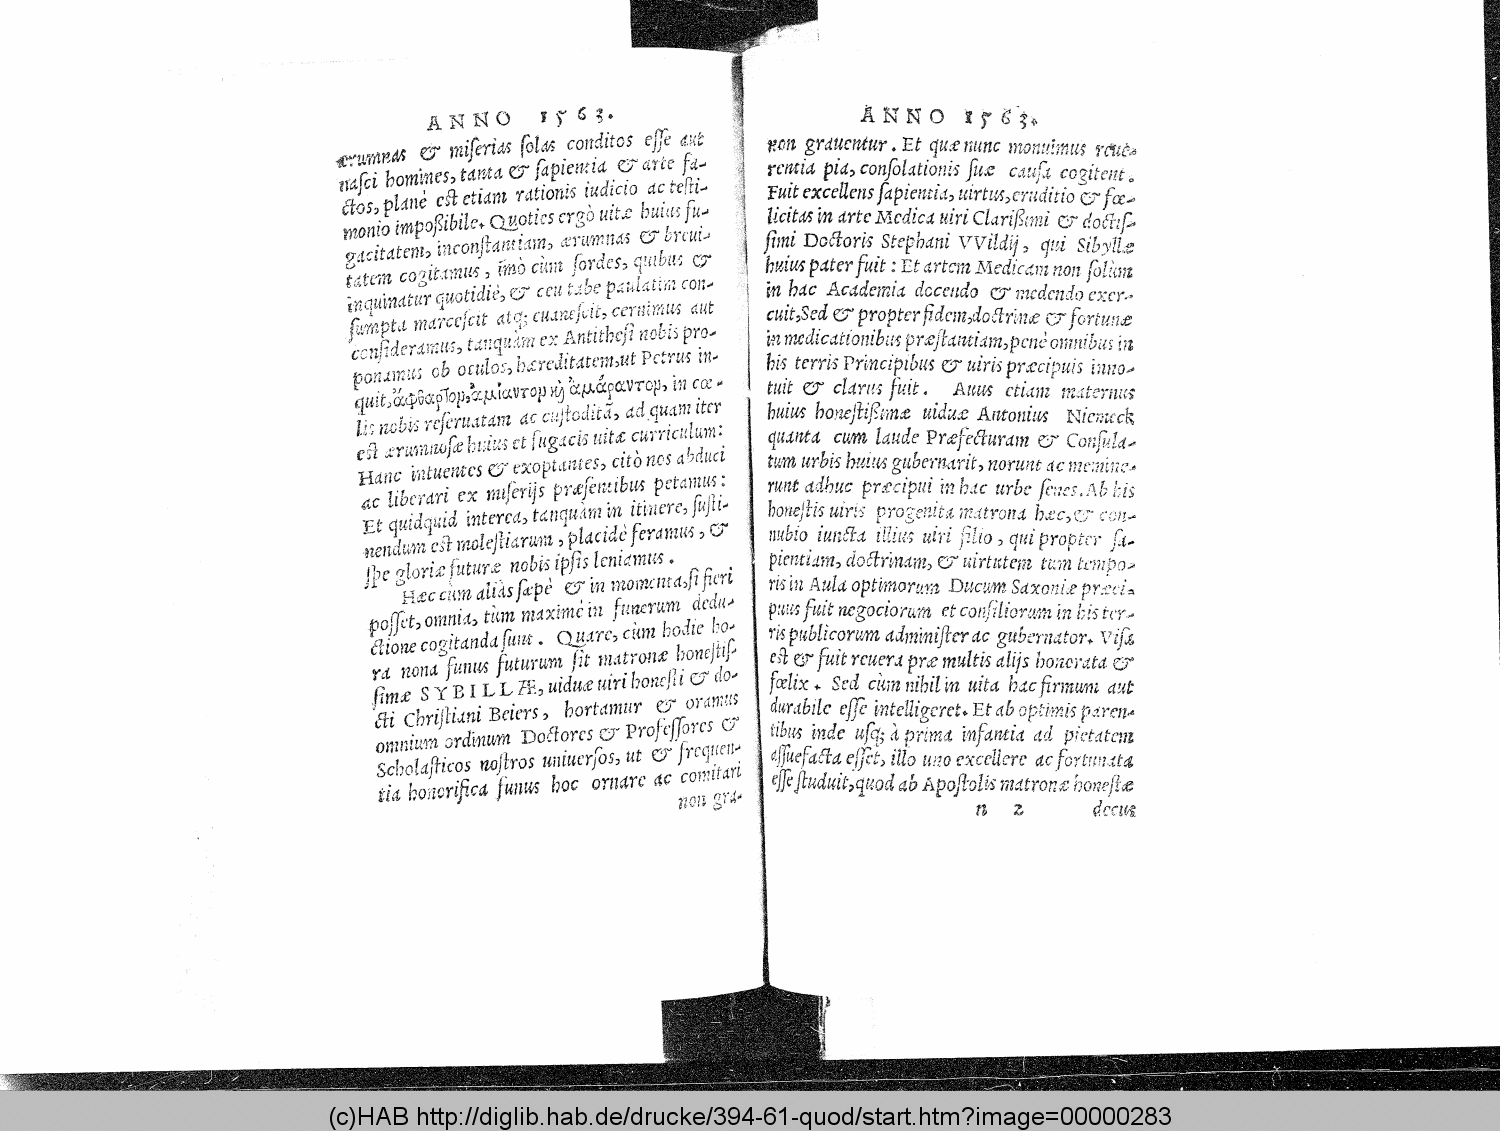 ANNO 1563.
ærumnas & miſerias ſolas conditos eſſe aut
naſci homines, tanta & ſapientia & arte fa-
ctos, planè eſt etiam rationis iudicio ac teſti-
monio impoßibile. Quoties ergò uitæ huius fu-
gacitatem, inconſtantiam, ærumnas & breui-
tatem cogitamus, imò cùm ſordes, quibus &
inquinatur quotidiè, & ceu tabe paulatim con-
ſumpta marceſcit atq; euaneſcit, cernimus aut
conſideramus, tanquàm ex Antitheſi nobis pro-
ponamus ob oculos, hæreditatem, ut Petrus in-
quit, ἄφθαρτον, ἀμίαντον κὴ ἀμάραντον, in cœ-
lis nobis reſeruatam ac cuſtoditã, ad quam iter
eſt ærumnoſæ huius et fugacis uitæ curriculum:
Hanc intuentes & exoptantes, citò nos abduci
ac liberari ex miſerijs præſentibus petamus:
Et quidquid interea, tanquàm in itinere, ſuſti-
nendum eſt moleſtiarum, placidè feramus, &
ſpe gloriæ futuræ nobis ipſis leniamus.
Hæc cùm aliàs ſæpè & in momenta, ſi fieri
poſſet, omnia, tùm maximè in funerum dedu-
ctione cogitanda ſunt. Quare, cùm hodie ho-
ra nona funus futurum ſit matronæ honeſtiſ-
ſimæ SYBILLÆ, uiduæ uiri honeſti & do-
cti Chriſtiani Beiers, hortamur & oramus
omnium ordinum Doctores & Profeſſores &
Scholaſticos noſtros uniuerſos, ut & frequen-
tia honorifica funus hoc ornare ac comitari
non gra-
ANNO 1563.
non grauentur. Et quæ nunc monuimus reue-
rentia pia, conſolationis ſuæ cauſa cogitent.
Fuit excellens ſapientia, uirtus, eruditio & fœ-
licitas in arte Medica uiri Clarißimi & doctiſ-
ſimi Doctoris Stephani VVildij, qui Sibyllæ
huius pater fuit: Et artem Medicam non ſolùm
in hac Academia docendo & medendo exer-
cuit, Sed & propter fidem, doctrinæ & fortunæ
in medicationibus præſtantiam, penè omnibus in
his terris Principibus & uiris præcipuis inno-
tuit & clarus fuit. Auus etiam maternus
huius honeſtißimæ uiduæ Antonius Niemeck
quanta cum laude Præfecturam & Conſula-
tum urbis huius gubernarit, norunt ac memine-
runt adhuc præcipui in hac urbe ſenes. Ab his
honeſtis uiris progenita matrona hæc, & con-
nubio iuncta illius uiri filio, qui propter ſa-
pientiam, doctrinam, & uirtutem tum tempo-
ris in Aula optimorum Ducum Saxoniæ præci-
puus fuit negociorum et conſiliorum in his ter-
ris publicorum adminiſter ac gubernator. Viſa
eſt & fuit reuera præ multis alijs honorata &
fœlix. Sed cùm nihil in uita hac firmum aut
durabile eſſe intelligeret. Et ab optimis paren-
tibus inde uſq; à prima infantia ad pietatem
aſſuefacta eſſet, illo uno excellere ac fortunata
eſſe ſtuduit, quod ab Apoſtolis matronæ honeſtæ
n 2 decus
(c)HAB http://diglib.hab.de/drucke/394-61-quod/start.htm?image=00000283